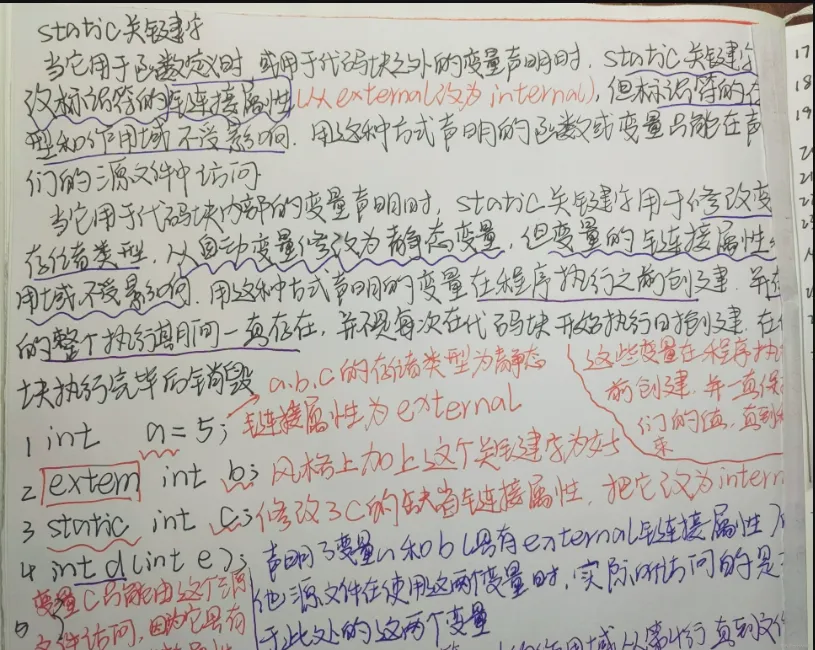 static关键字
当它用于函数定义时 或用于代码块之外的变量声明时. static关键字
改标识符的链接属性(从external改为internal), 但标识符的存
型和作用域不受影响. 用这种方式声明的函数或变量只能在声
们的源文件中访问
当它用于代码块内部的变量声明时, static关键字用于修改变
存储类型, 从自动变量修改为静态变量, 但变量的链接属性
用域不受影响. 用这种方式声明的变量在程序执行之前创建. 并在
的整个执行期间一直存在, 并不是每次在代码块开始执行时创建. 在
块执行完毕后销毁
a.b.c的存储类型为静态
链接属性为external
这些变量在程序执
前创建. 并一直保
们的值, 直到
束
1 int a = 5;
2 extern int b; 风格上加上这个关键字为好
3 static int c; 修改了C的缺省链接属性, 把它改为intern
4 int d(int e);
声明了变量a和b具有external链接属性
他源文件在使用这两个变量时, 实际所访问的是
于此处的这两个变量
变量C只能由这个源
文件访问, 因为它具有
5
作用域从第4行直到文件
17
18
19